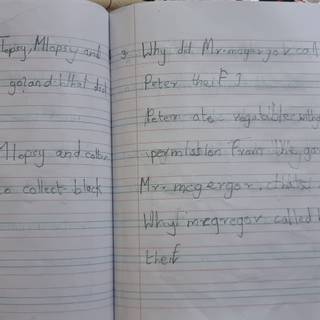 Topsy, Mlopsy and
go and that did
Mlopsy and cotton
to collect black
9. Why did Mr. magergor call
Peter theif?
Peter ate vegabile witho
permission From the ga
Mr. mcgergor, thats
Why mrgregor called h
theif